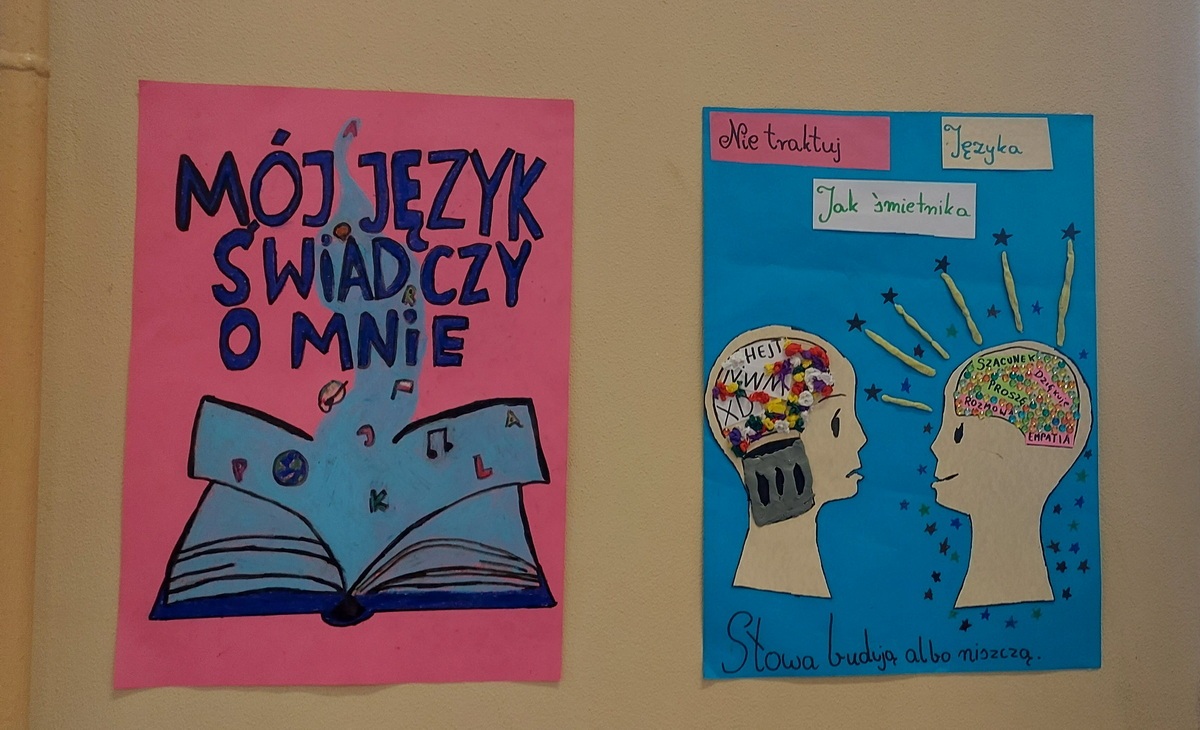 MÓJ JĘZYK
ŚWiADCZY
O MNiE
A
R
P
J
K
L
A
Nie traktuj
Języka
Jak śmietnika
HEJT
XD
SZACUNEK
DZIĘKUJĘ
PROSZĘ
ROZMOWA
EMPATIA
Słowa budują albo niszczą.